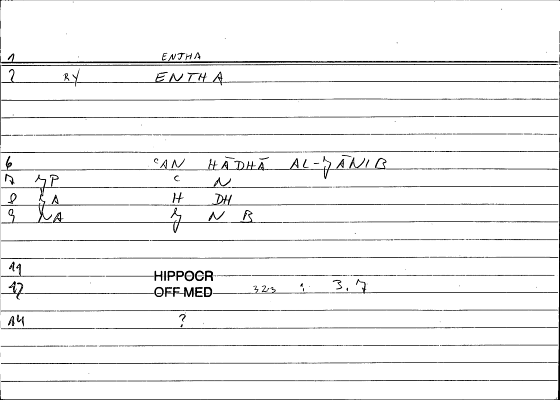 1 ENTHA
2 RY ENTHA
6 ʿAN HĀDHĀ AL-ǦĀNIB
7 ǦP ʿ N
8 ǦA H DH
9 NA Ǧ N B
11 HIPPOCR
12 OFF MED 323 : 3. 7
14 ?